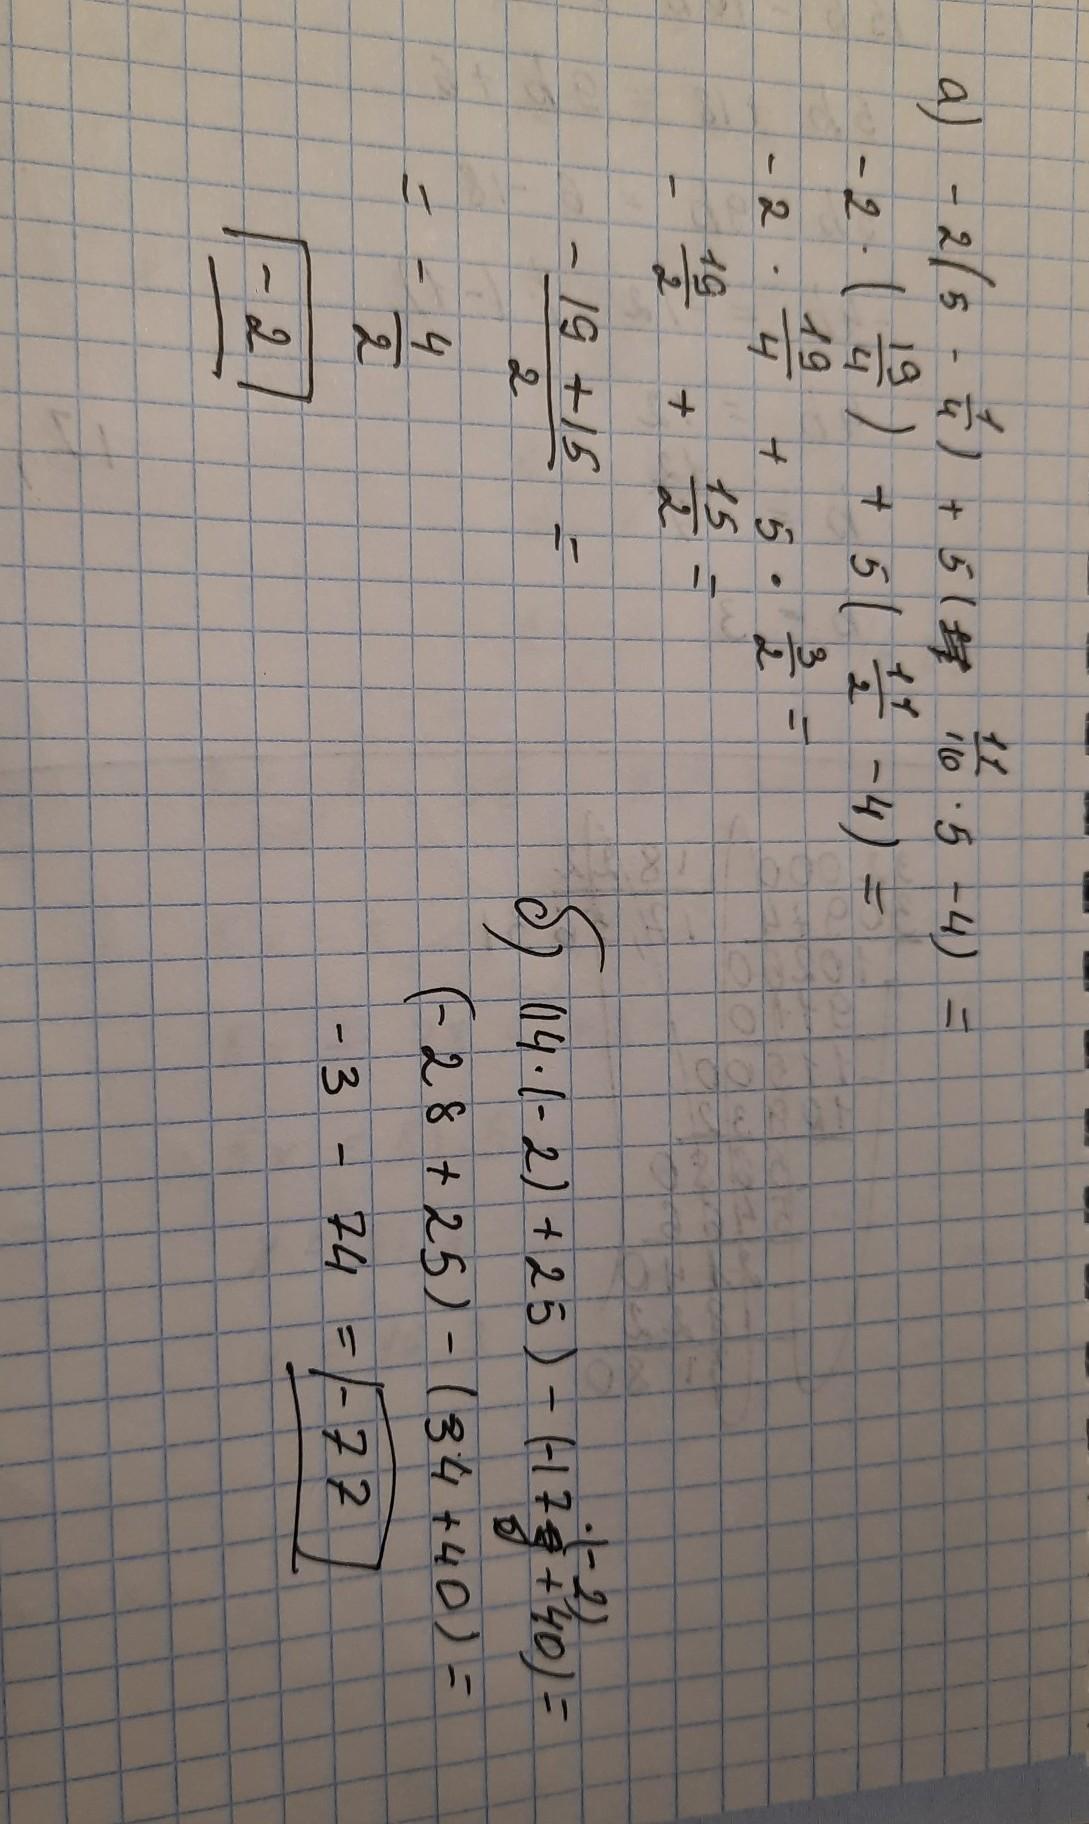 а) - 2(5 - 1/4) + 5( 11/10 · 5 - 4) =
- 2 · ( 19/4 ) + 5( 11/2 - 4) =
- 2 · 19/4 + 5 · 3/2 =
- 19/2 + 15/2 =
- 19 + 15 / 2 =
= - 4/2
- 2
б) (14·(-2) + 25) - (-17 ·(-2) + 40) =
(-28 + 25) - (34 + 40) =
- 3 - 74 = - 77